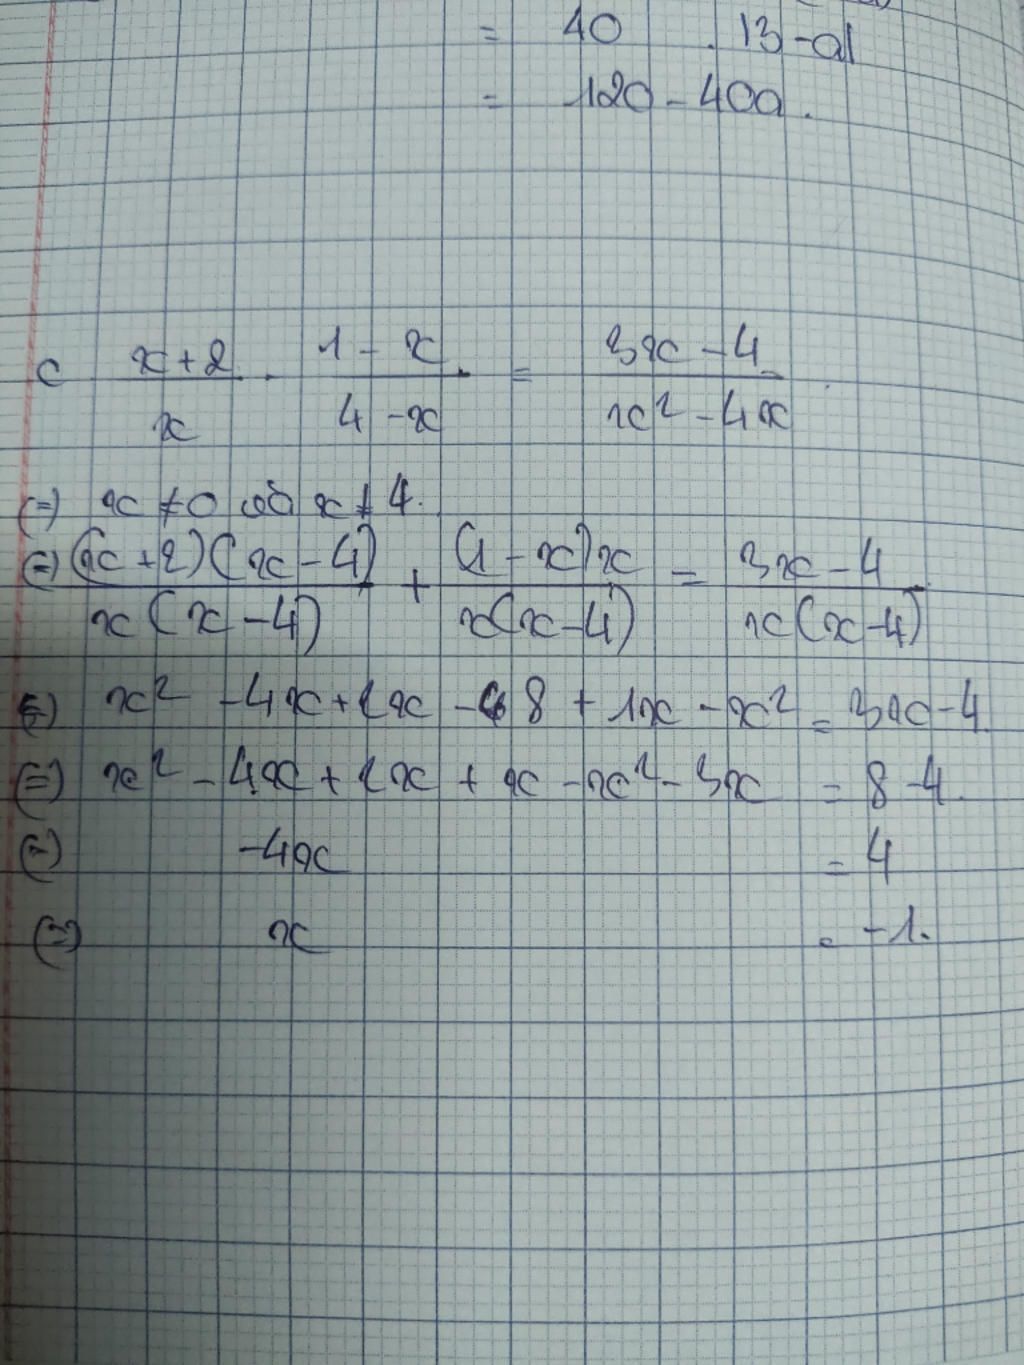 = 40 . |3-a|
= 120 - 40a.
c \frac{x+2}{x} - \frac{1-x}{4-x} = \frac{3x-4}{x^2-4x}
(=) x ≠ 0 và x ≠ 4.
(=) \frac{(x+2)(x-4)}{x(x-4)} + \frac{(1-x)x}{x(x-4)} = \frac{3x-4}{x(x-4)}
(=) x² - 4x + 2x - 8 + 1x - x² = 3x - 4
(=) x² - 4x + 2x + x - x² - 3x = 8 - 4.
(=) -4x = 4
(=) x = -1.